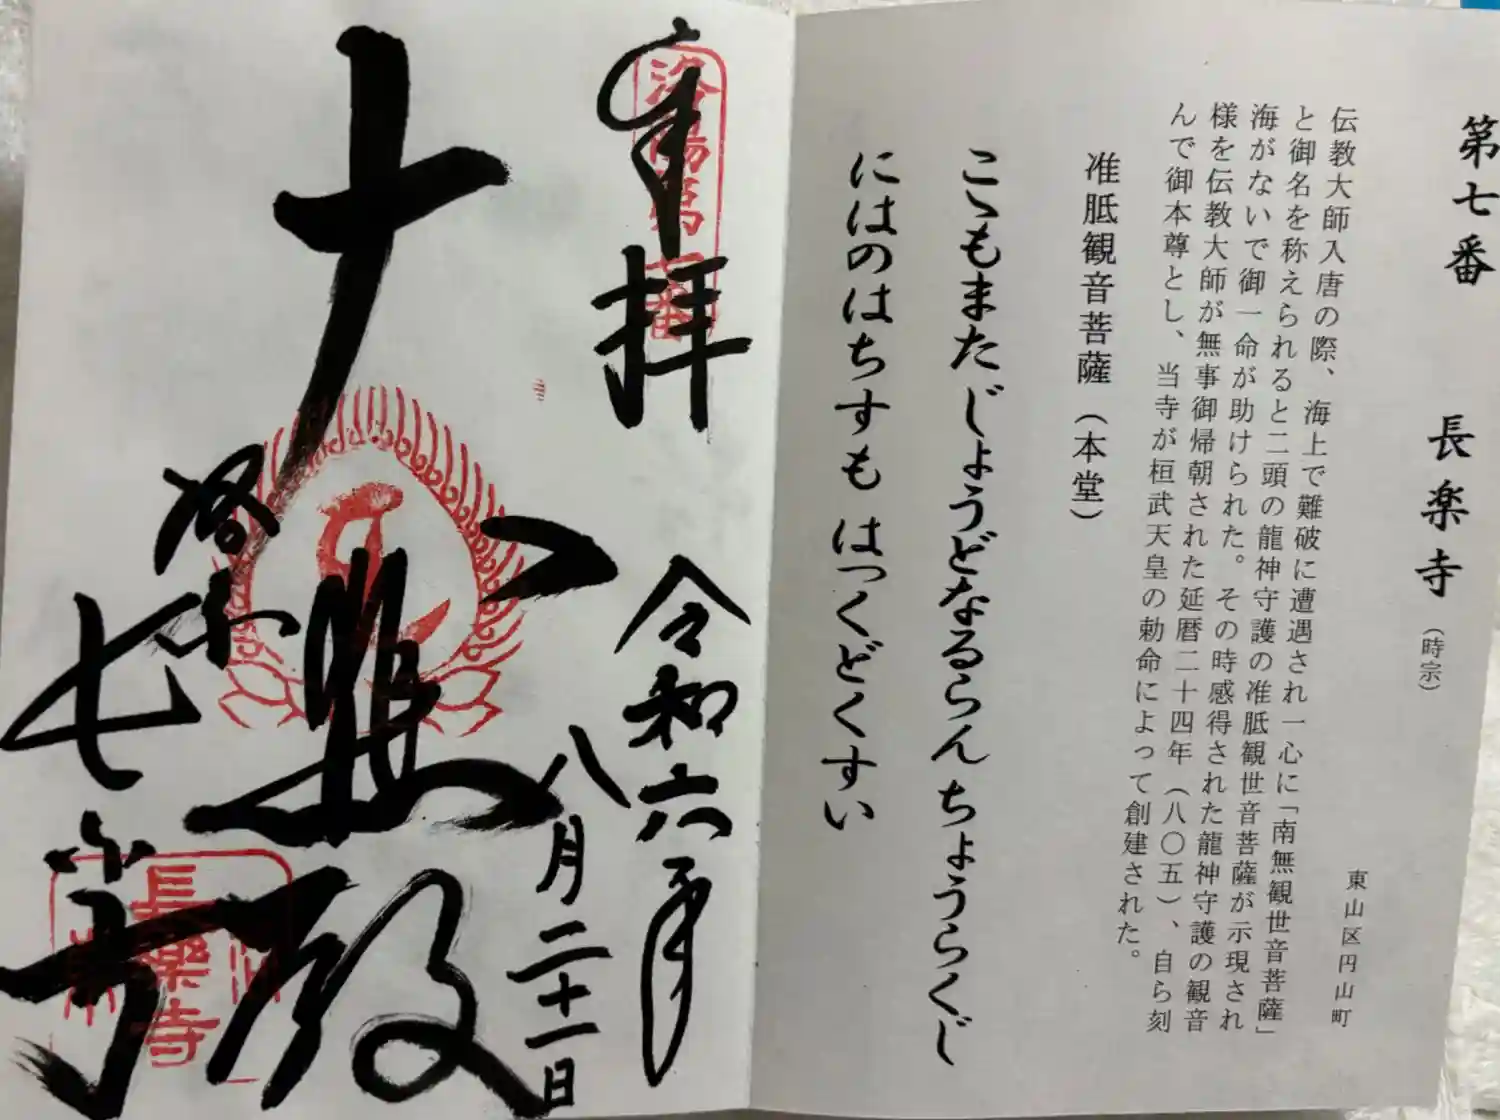 第七番　長楽寺（時宗）
東山区円山町
伝教大師入唐の際、海上で難破に遭遇され一心に「南無観世音菩薩」
と御名を称えられると二頭の龍神守護の准胝観世音菩薩が示現され
海がないで御一命が助けられた。その時感得された龍神守護の観音
様を伝教大師が無事御帰朝された延暦二十四年（八〇五）、自ら刻
んで御本尊とし、当寺が桓武天皇の勅命によって創建された。
准胝観音菩薩（本堂）
こゝもまた じょうどなるらん ちょうらくじ
にはのはちすも はっくどくすい
奉拝
令和六年
八月二十一日
大悲殿
七
長楽寺